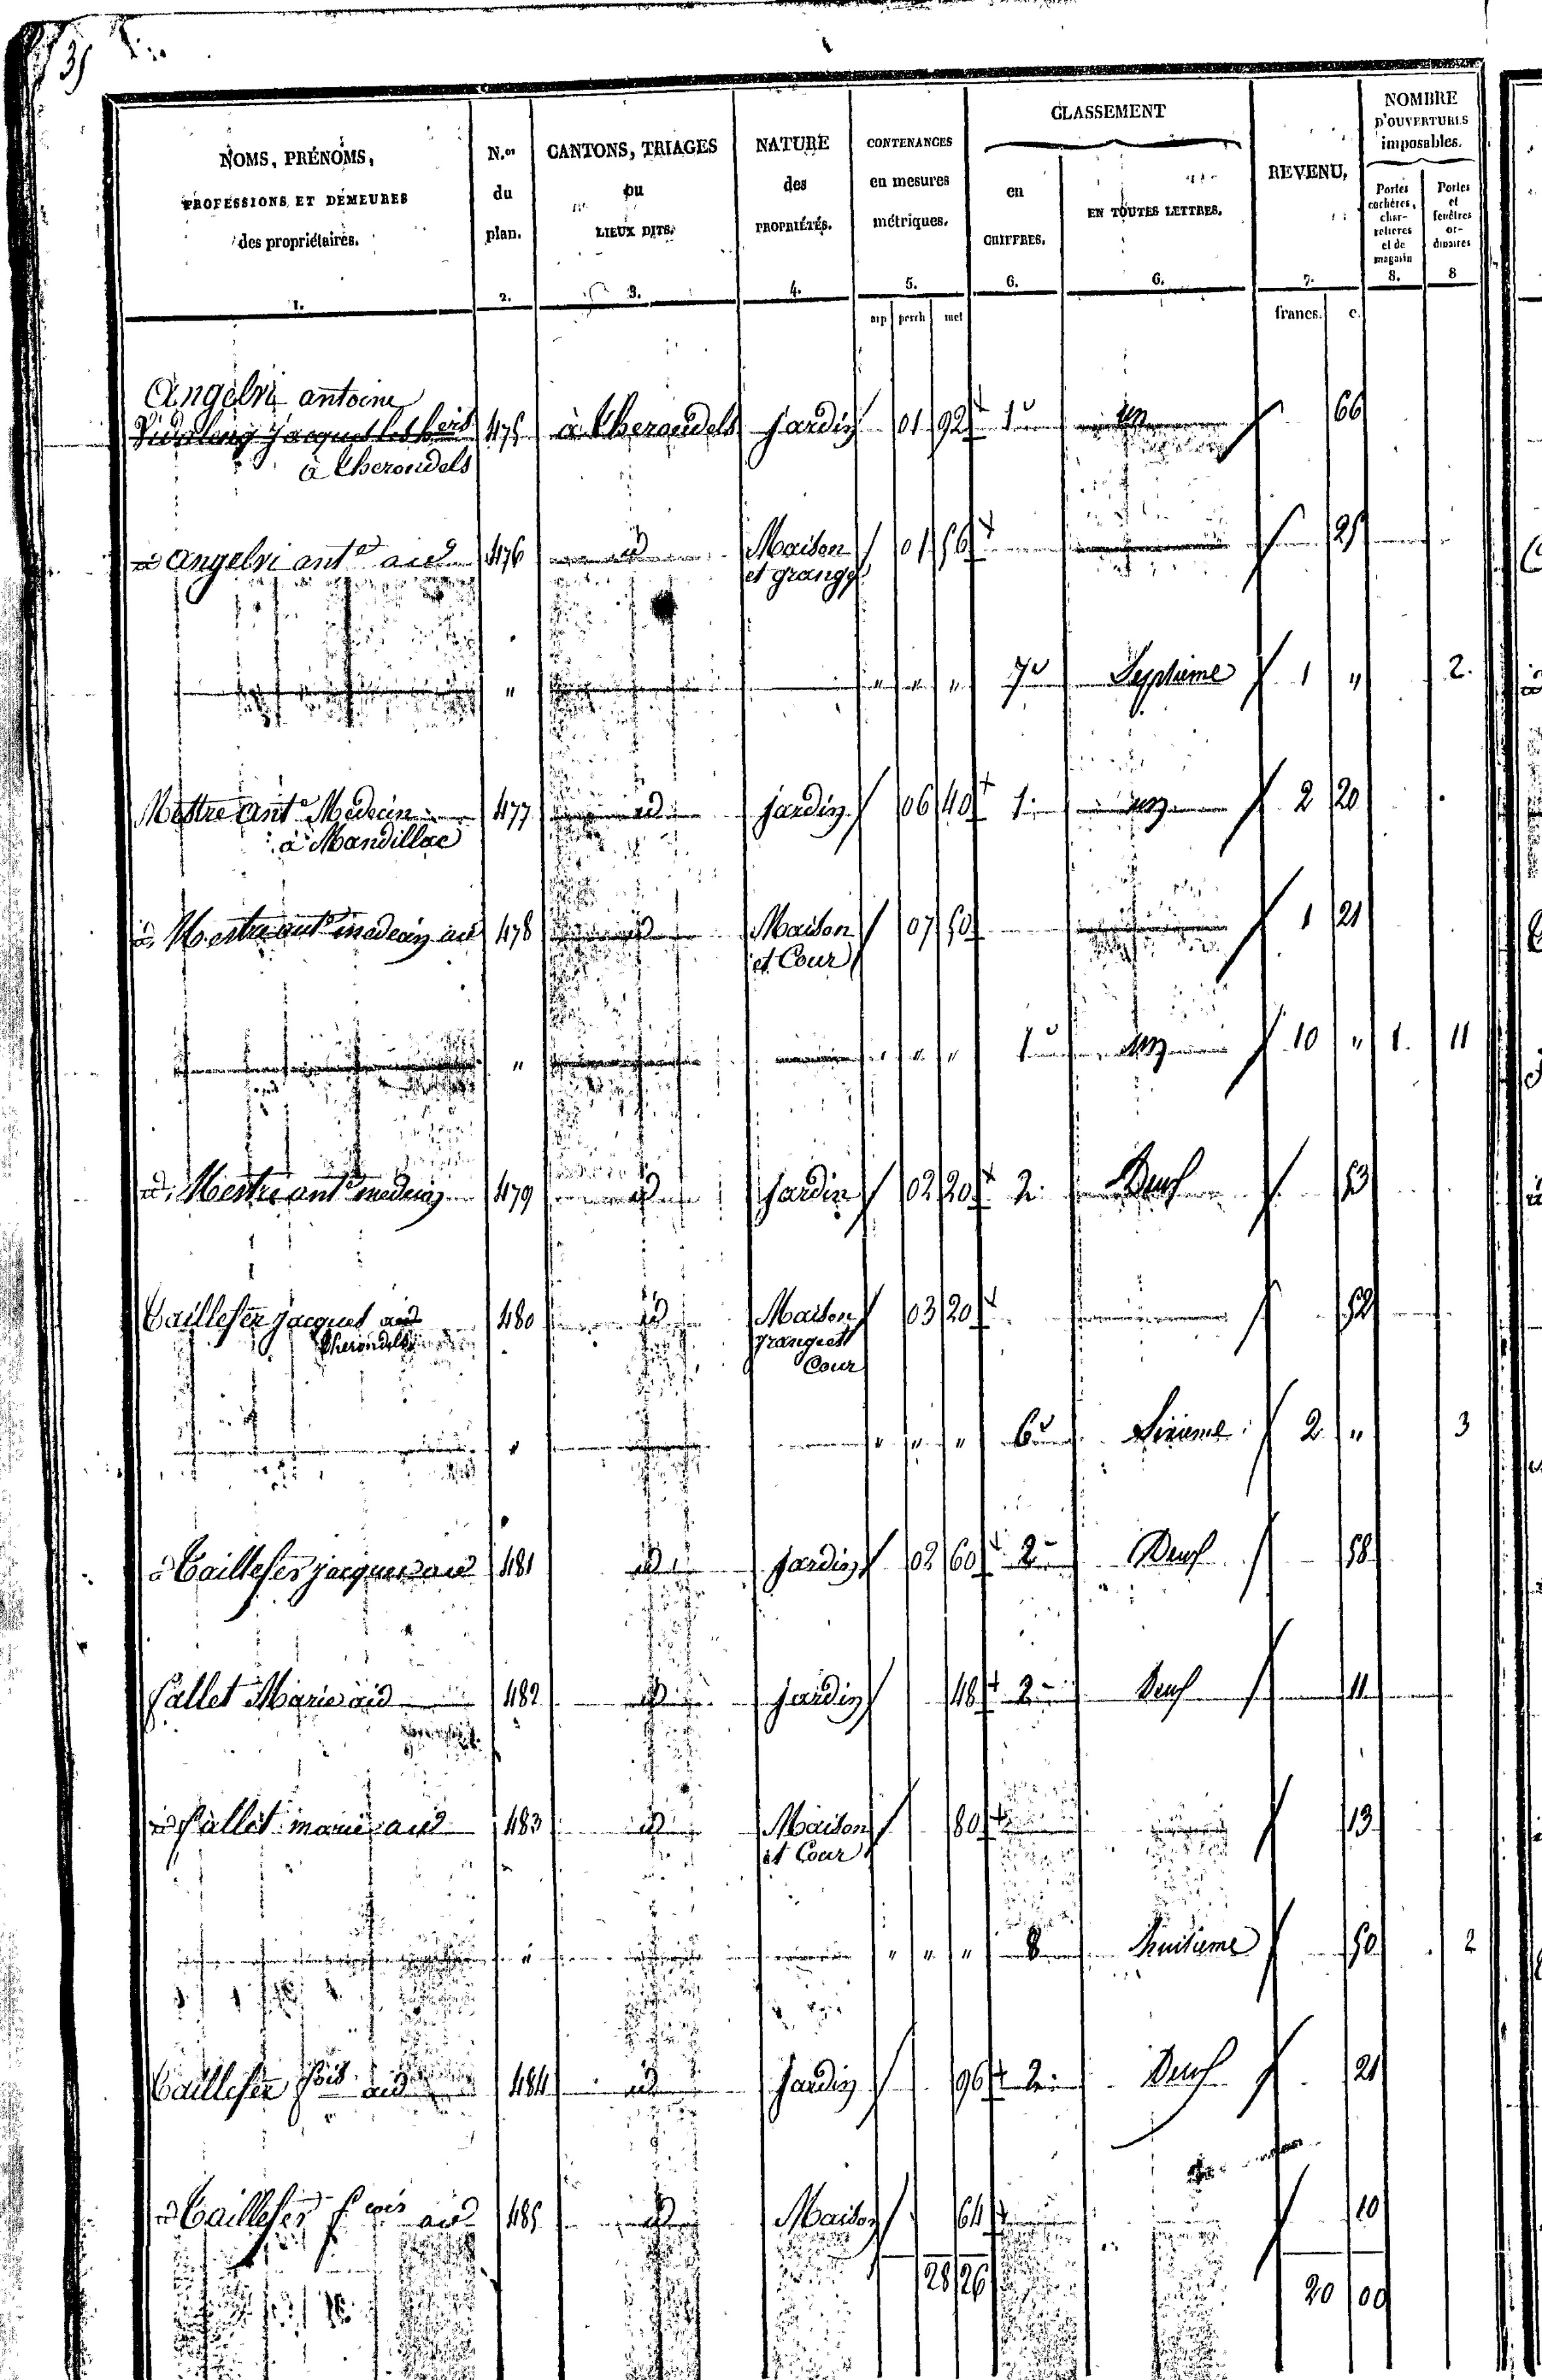 35
NOMS, PRÉNOMS,
PROFESSIONS ET DEMEURES
des propriétaires.
1.
N.os
du
plan.
2.
CANTONS, TRIAGES
ou
LIEUX DITS.
3.
NATURE
des
PROPRIÉTÉS.
4.
CONTENANCES
en mesures
métriques.
5.
arp perch met
CLASSEMENT
en
CHIFFRES.
6.
EN TOUTES LETTRES.
6.
REVENU,
7.
francs. c.
NOMBRE
D'OUVERTURES
imposables.
Portes
cochères,
char-
retieres
et de
magasin
8.
Portes
et
fenêtres
or-
dinaires
8
Angelvi antoine
Vidaleng Jacques les hers 475 à Therondels jardin 01 92 1e un 66
à Therondels
id angelvi ante aid 476 id Maison 01 56 25
et grange
" " " " 7e Septieme 1 " 2.
Mestre Ante Médecin 477 id jardin 06 40 1. un 2 20
à Mandillac
id Mestre ante medecin aid 478 id Maison 07 50 1 21
et Cour
" " " " 1e un 10 " 1. 11
id. Mestre ante medecin 479 id jardin 02 20 2. Deux 53
Taillefer jacques aid 480 id Maison 03 20 52
Therondels grange et
Cour
" " " " 6e Sixieme 2 " 3
id Taillefer jacques aid 481 id jardin 02 60 2 Deux 58
fallet Marie aid 482 id jardin 48 2 Deux 11
id fallet marie aid 483 id Maison 80 13
et Cour
" " " " 8 huitieme 50 2
Taillefer fois aid 484 id Jardin 96 2. Deux 21
id Taillefer fcois aid 485 id Maison 64 10
28 26 20 00